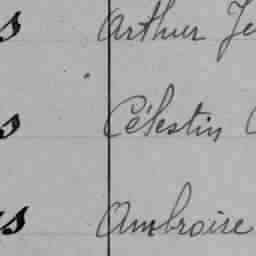 s Arthur Je
s Célestin
s Ambroise